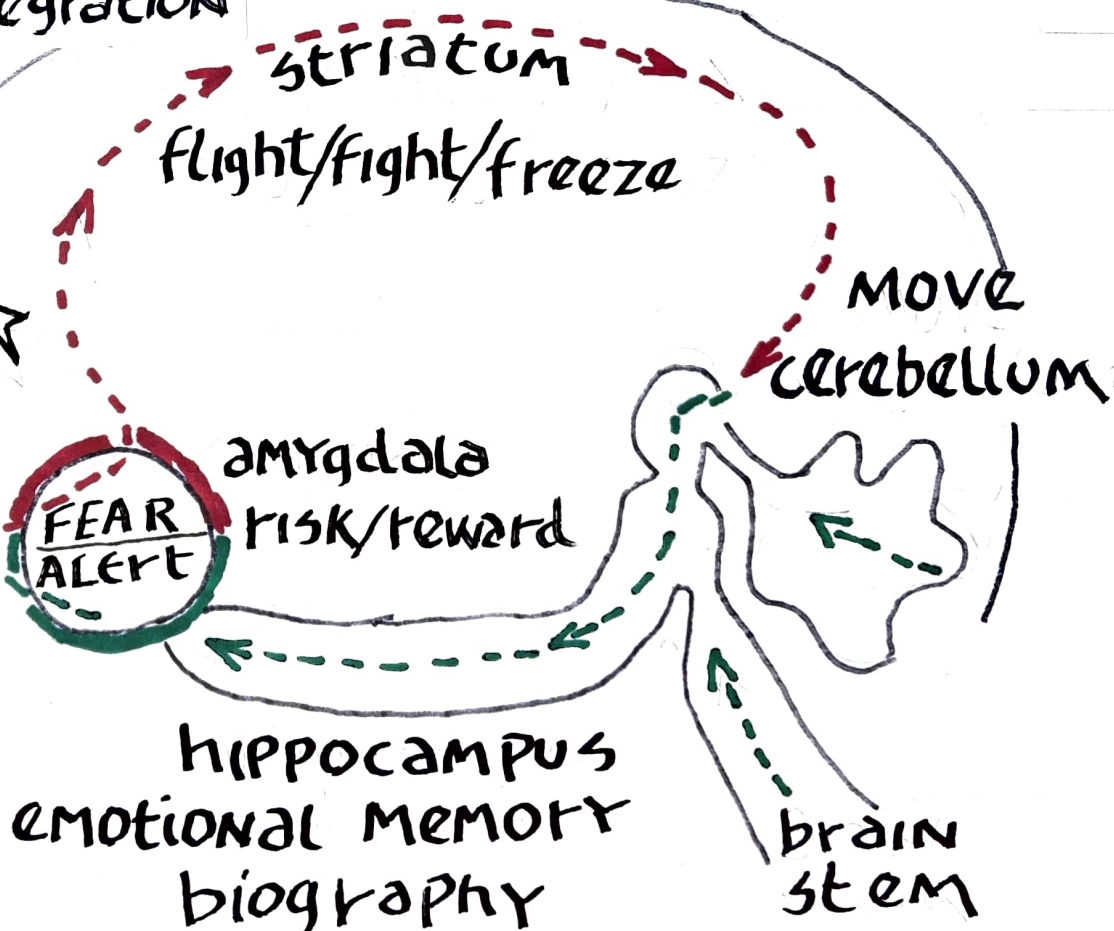 egration
striatum
flight/fight/freeze
move
cerebellum
amygdala
risk/reward
FEAR
ALErt
hippocampus
emotional memory
biography
brain
stem